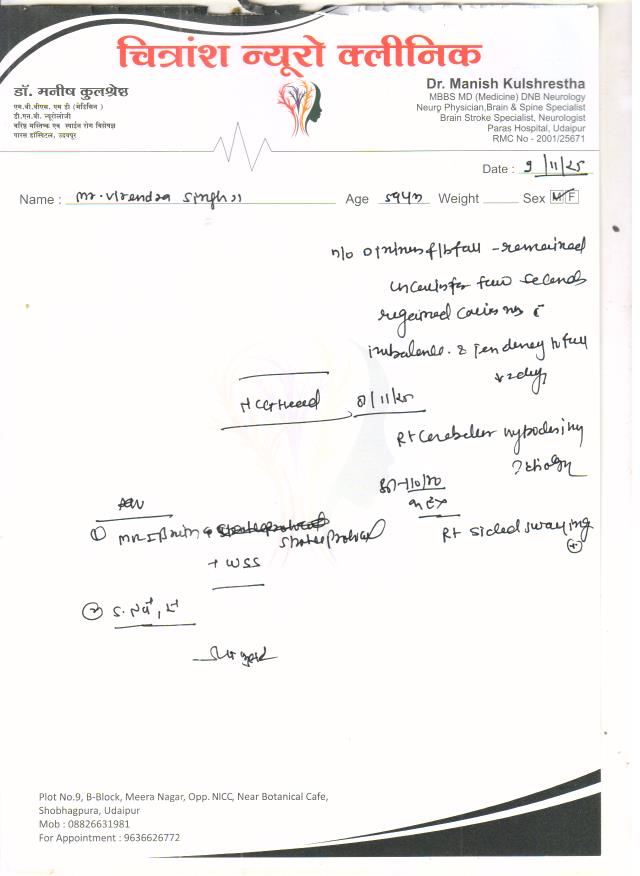 चित्रांश न्यूरो क्लीनिक
डॉ. मनीष कुलश्रेष्ठ
एम.बी.बी.एस. एम डी (मेडिसिन)
डी.एन.बी. न्यूरोलॉजी
वरिष्ठ मस्तिष्क एवं स्पाईन रोग विशेषज्ञ
पारस हॉस्पिटल, उदयपुर
Dr. Manish Kulshrestha
MBBS MD (Medicine) DNB Neurology
Neuro Physician,Brain & Spine Specialist
Brain Stroke Specialist, Neurologist
Paras Hospital, Udaipur
RMC No - 2001/25671
Date : 9/11/25
Name : Mr. Virendra Singh Age Weight Sex M/F
fall - remained
for few seconds
regained
imbalance. & tendency to fall
NCCT Head 8/11/25
Rt Cerebellar
? etiology
110/70
Rt sided swaying
(+)
Adv
① MRI Brain stroke protocol
+ WSS
② S. Na+, K+
Plot No.9, B-Block, Meera Nagar, Opp. NICC, Near Botanical Cafe,
Shobhagpura, Udaipur
Mob : 08826631981
For Appointment : 9636626772